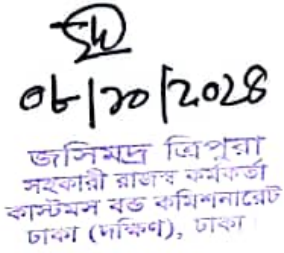 ০৮/১০/২০২৪
জসিমদ্র ত্রিপুরা
সহকারী রাজস্ব কর্মকর্তা
কাস্টমস বন্ড কমিশনারেট
ঢাকা (দক্ষিণ), ঢাকা।